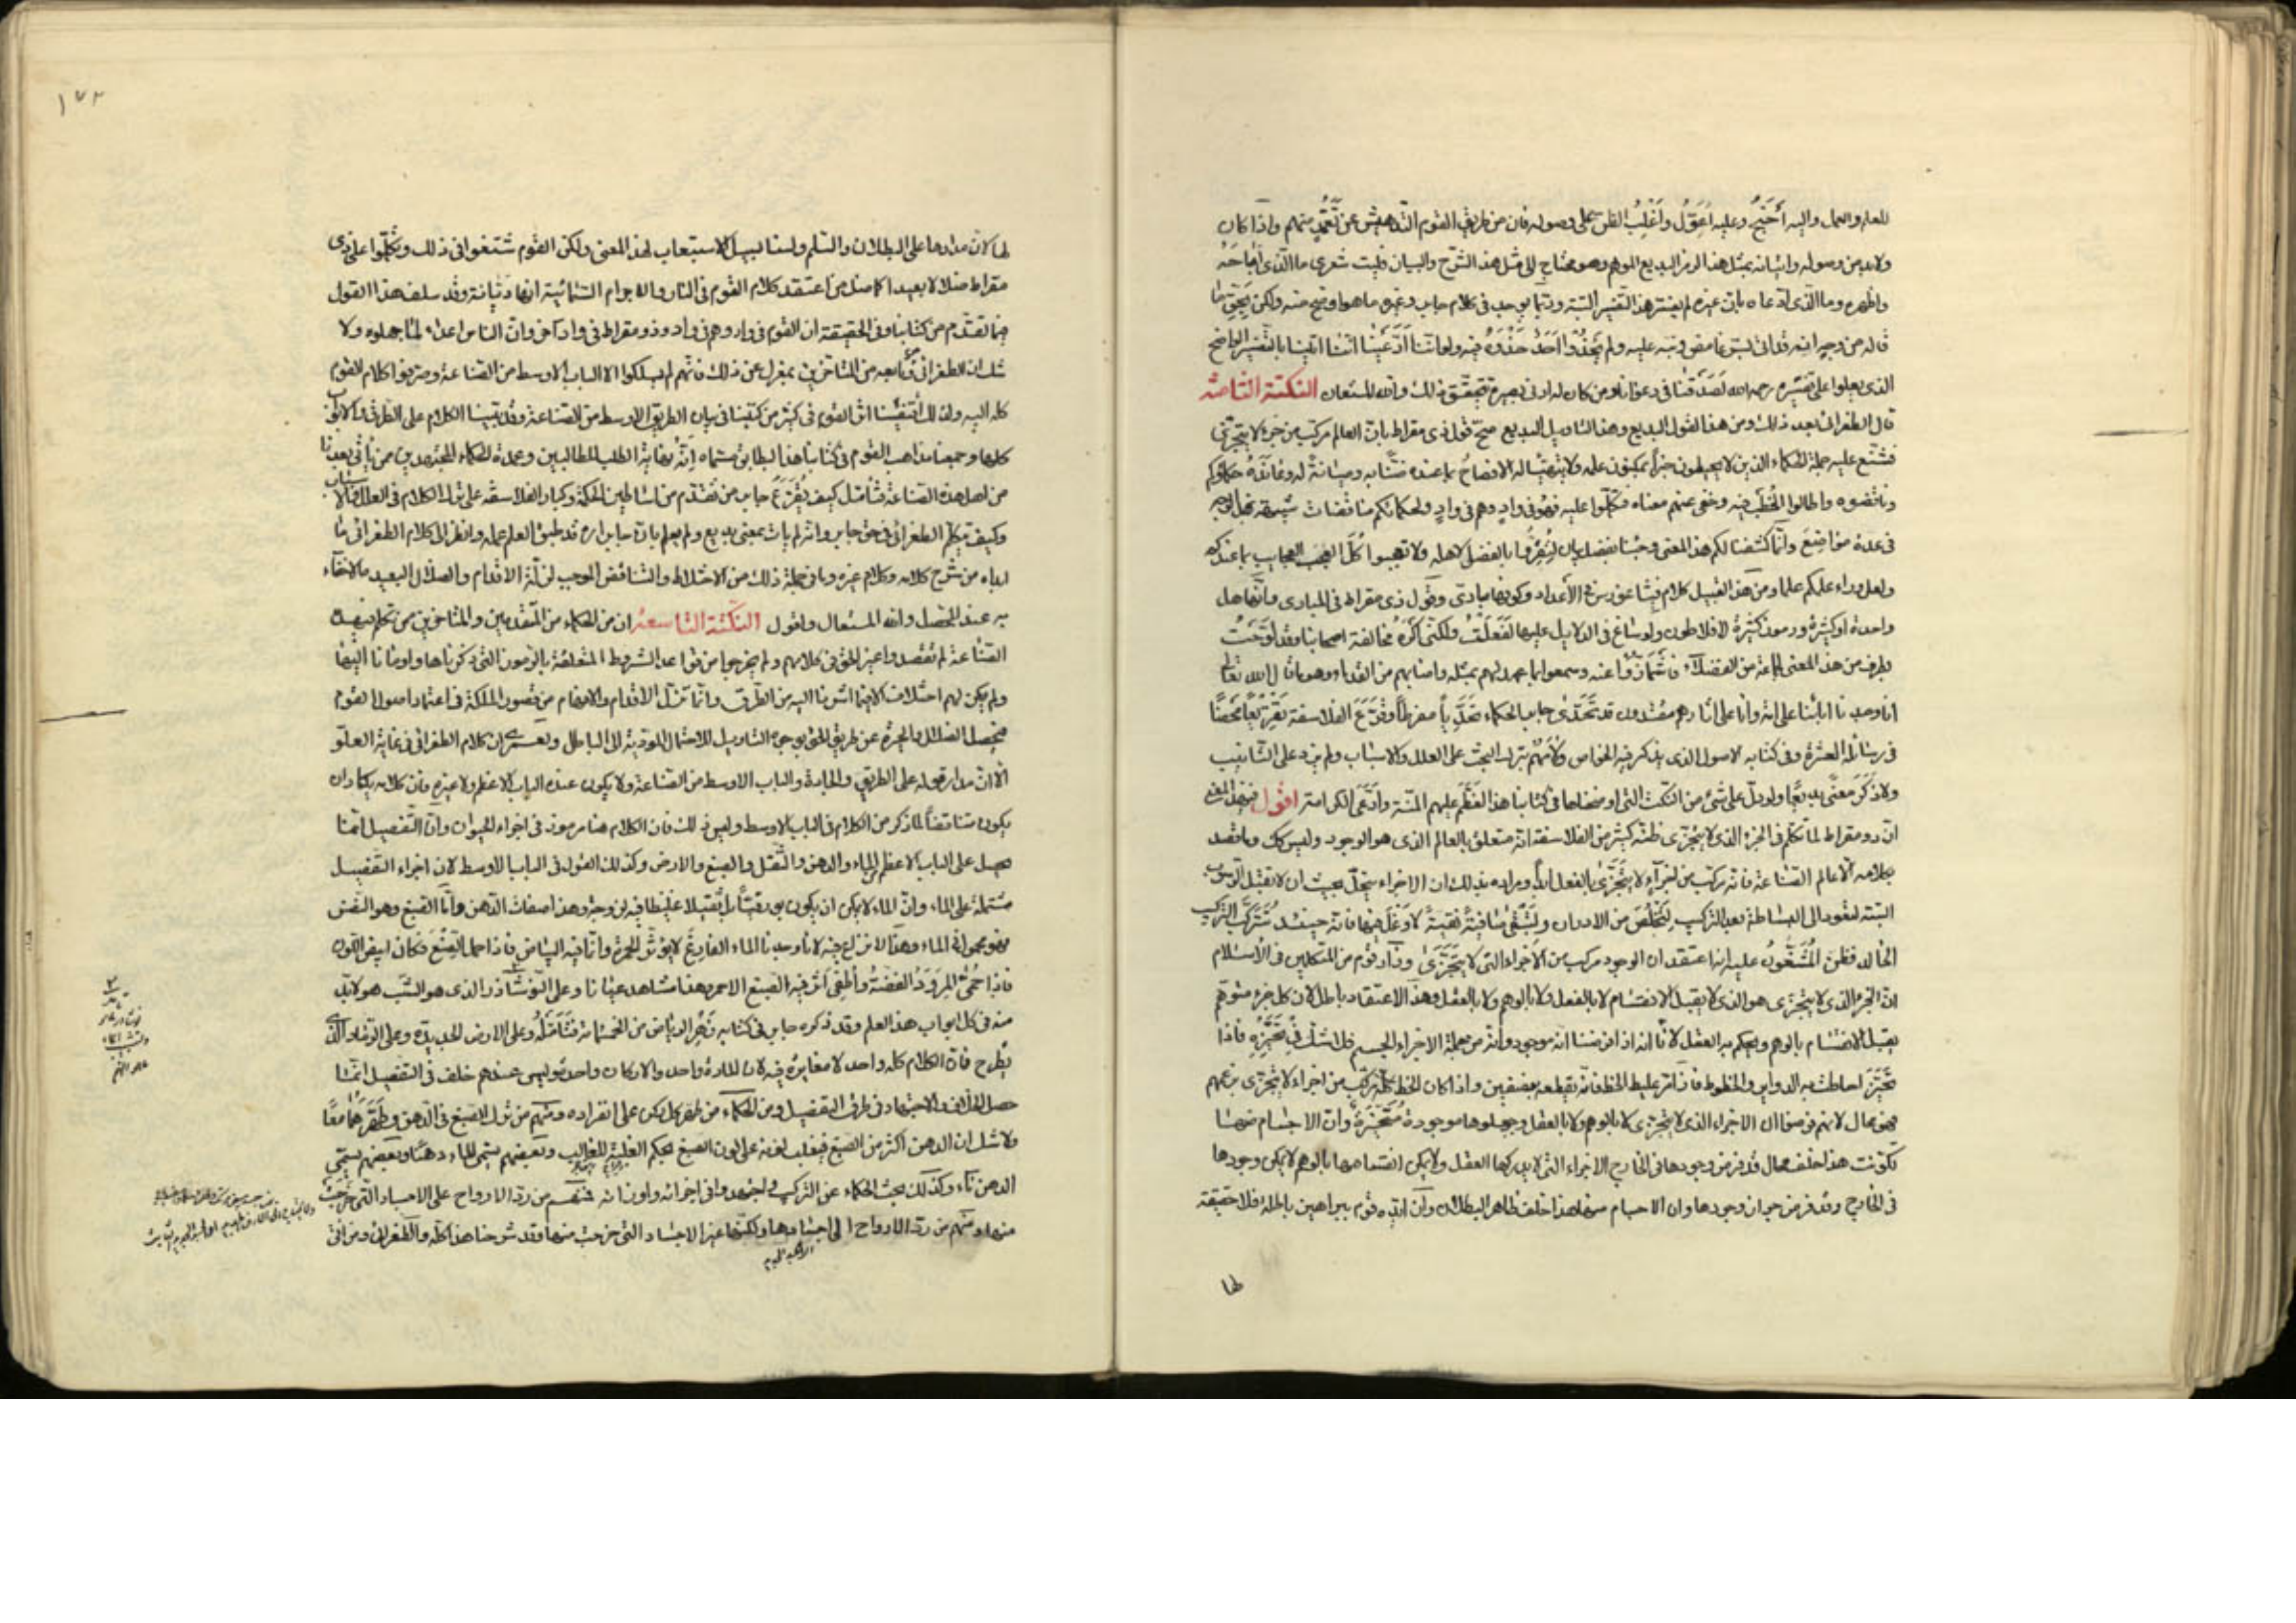 للعلم والعمل واليه أجنح وعليه أعول وأغلب الظن على وصوله فان من طريق القوم التدهيش عن تعمد منهم واذا كان
ولابد من وصوله واتيانه بمثل هذا الرمز البديع الموهم وهو محتاج الى مثل هذا الشرح والبيان فليت شعري ما الذي أباحه
وأظهره وما الذي ادعاه بان غيره لم يفسر هذا التفسير البتة وربما يوجد في كلام جابر وغيره ما هو اوضح منه ولكن
قاله من وجه انه قد اتى بسر غامض ونبه عليه ولم يحذوا احد حذوه فيه ولو اننا ادعينا اننا اتينا بالتفسير الواضح
الذي يعلوا على تفسيره رحمه الله لصدقنا في دعوانا ومن كان له ادنى بصيرة تحقق ذلك والله المستعان النكتة الثامنة
قال الطغرائي بعد ذلك ومن هذا القول البديع وهذا التاويل البديع صح قول ذي مقراط بان العالم مركب من جزء لا يتجزى
فشنع عليه جملة الحكماء الذين لا يحيطون خبرا بمكنون علمه ولا يتهيا له الافصاح بما عنده ضنا به وصيانة له وعانده حكماؤكم
وناقضوه واطالوا الخطب فيه وخفى عنهم معناه فتكلموا عليه فهو في واد وهم في واد ولحكمائكم مناقضات
في عدة مواضع وانما كشفنا لكم هذا المعنى وجئنا بفضل بيان لتقروا بالفضل لاهله ولا تعجبوا كل العجب العجاب بما عندكم
ولعل وراء علمكم علما ومن هذا القبيل كلام فيثاغورس في الأعداد وكونها مبادى وقول ذي مقراط في المبادى وانها هل
واحدة او كثيرة ورموز كثيرة لافلاطون ولو ساغ في الدلايل عليها لفعلت ولكني اكره مخالفة اصحابنا وقد لوحت
بطرف من هذا المعنى لجماعة من الفضلاء فاشمأزوا عنه وسمعوا بما عهد لهم بمثله واصابهم من القدماء وهو ما قال الله تعالى
انا وجدنا اباءنا على امة وانا على اثارهم مقتدون قد تحدى جابر الحكماء تحديا مفرطا وقرع الفلاسفة تقريعا محضا
في رسائله العشرة وفي كتابه الاصول الذي يذكر فيه الخواص وألزمهم بترك البحث على العلل والاسباب ولم يزد على التانيب
ولا ذكر معنى بديعا ولو دل على شئ من النكت التي اوضحناها في كتابنا هذا لعظم عليهم المنة وادعى الكرامة اقول
ان ذومقراط لما تكلم في الجزء الذي لا يتجزى ظن كثير من الفلاسفة انه متعلق بالعالم الذي هو الوجود وليس كك وما قصد
بكلامه الا عالم الصناعة فانه مركب من اجزاء لا يتجزى بالفعل ابدا ومراده بذلك ان الاجزاء تنحل بحيث ان لا تقبل الرسوب
البتة لتعود الى البساطة بعد التركيب لتخلص من الادران ولتبقى صافية نقية لا وغل فيها فانه حينئذ تتركب التركيب
الخالد فظن المشنعون عليه انه اعتقد ان الوجود مركب من الاجزاء التي لا تتجزى وزاد قوم من المتكلمين في الاسلام
ان الجزء الذي لا يتجزى هو الذي لا يقبل الانقسام لا بالفعل ولا بالوهم ولا بالعقل وهذا الاعتقاد باطل لان كل جزء متوهم
يقبل الانقسام بالوهم ويحكم به العقل لانا اذا فرضنا انه موجود وانه من جملة الاجزاء الجسم فلا شك في تحيزه فاذا
تحيز احاطت به الدواير والخطوط فاذا مر عليه الخط فانه يقطعه بنصفين واذا كان الخط كله تركب من اجزاء لا تتجزى بزعمهم
فهو محال لانهم فرضوا ان الاجزاء الذي لا تتجزى لا بالوهم ولا بالعقل وجعلوها موجودة متحيزة وان الاجسام منها
تكونت هذا خلف محال قد فرض وجودها في الخارج الاجزاء التي لا يدركها العقل ولا يمكن انقسامها بالوهم لا يمكن وجودها
في الخارج وقد فرض حيزان وجودها وان الاجسام منها هذا خلف ظاهر البطلان وان ايده قوم ببراهين باطلة فلا حقيقة
لها
١٧٢
لها لان مدارها على البطلان والسلم ولسنا لسبيل الاستيعاب لهذا المعنى ولكن القوم شنعوا في ذلك وتكلموا على ذي
مقراط ضلالا بعيدا كما ضل من اعتقد كلام القوم في النار والاجرام السمائية انها دثانة وقد سلف هذا القول
فيما تقدم من كتابنا وفي الحقيقة ان القوم في واد وهم في واد وذومقراط في واد آخر وان الناس اعداء لما جهلوه ولا
شك ان الطغرائي ومن تابعه من المتاخرين بمعزل عن ذلك فانهم لم يسلكوا الا الباب الاوسط من الصناعة وصرفوا كلام القوم
كله اليه ولذلك اقتفينا اثر القوم في كثير من كتبنا في بيان الطريق الاوسط من الصناعة وقد بينا الكلام على الطرق والابواب
كلها وجمعنا مذاهب القوم في كتابنا هذا المطابق مسماه انه نهاية الطلب للطالبين وعمدة للحكماء المجتهدين من ياتي بعدنا
من اهل هذه الصناعة فتأمل كيف يقرع جابر من تقدم من اساطين الحكمة وكبار الفلاسفة على ترك الكلام في العلل والاسباب
وكيف تكلم الطغرائي في حق جابر وانه لم يات بمعنى بديع ولم يعلم بان جابر اره قد طبق العلم عمله وانظر الى كلام الطغرائي ما
ابداه من شرح كلامه وكلام غيره وما في جملة ذلك من الاختلاط والتناقض الموجب لزلة الاقدام والضلال البعيد ما لا خفاء
به عند المحصل والله المستعان واقول النكتة التاسعة ان من الحكماء من المتقدمين والمتاخرين ممن تكلم فيهذه
الصناعة لم تقصدوا غير الحق في كلامهم ولم يخرجوا من قواعد الشروط المتعلقة بالرموز التي ذكرناها واومانا اليها
ولم يكن لهم اختلاف الا فيما اشرنا اليه من الطرق وانما تزل الاقدام والافهام من قصور الملكة في اعتماد اصول القوم
فيحصل الضلال والحيرة عن طريق الحق بوجوه التاويل للاحتمال المودية الى الباطل ولعمري ان كلام الطغرائي في غاية العلو
الا ان مدار قوله على الطريق والجادة والباب الاوسط من الصناعة ولا يكون عنده الباب الاعظم ولا غيره فان كلامه يكاد ان
يكون متناقضا لما ذكر من الكلام في الباب الاوسط وليس ذلك فان الكلام هنا مرموز في اجزاء الحيوان وان التفصيل انما
يحصل على الباب الاعظم للماء والدهن والثفل والصبغ والارض وكذلك القول في الباب الاوسط لان اجزاء التفصيل
مشتملة على الماء وان الماء لا يمكن ان يكون بورقيا بل ثقيلا غليظا فيه لزوجة وهذا صفات الدهن واما الصبغ وهو النفس
فهو محمول في الماء وهذا لا نزاع فيه لانا وجدنا الماء الفارغ لا يؤثر الحمرة وانما فيه البياض فاذا حمل الصبغ فكان ابيض اللون
فاذا حمى المرود الفضة وأطفى اثر فيه الصبغ الاحمر وهذا مشاهد عيانا وعلى النوشادر الذي هو السبب هو لابد
منه في كل ابواب هذا العلم وقد ذكره جابر في كتابه زهر الرياض من الخمسماة فتامله وعلى الارض الحديدة وعلى الرماد الذي
يطرح فان الكلام كله واحد لا مغايرة فيه لان المادة واحد والاركان واحد وليس عندهم خلف في التفصيل انما
حصل الخلاف والاجتهاد في طرق التفصيل ومن الحكماء من طهر كل ركن على انفراده ومنهم من ترك الصبغ في الدهن وطهرهما معا
ولا شك ان الدهن اكثر من الصبغ فيغلب لونه على لون الصبغ بحكم الغلبة للغالب وبعضهم يسمى الماء دهنا وبعضهم يسمى
الدهن ماء وكذلك بحث الحكماء عن التركيب واجتهدوا في اجزائه واوزانه فمنهم من رد الارواح على الاجساد التي خرجت
منها ومنهم من رد الارواح الى اجسادها ولكنها غير الاجساد التي خرجت منها وقد شرحنا هذا كله والطغرائي ومن اتى